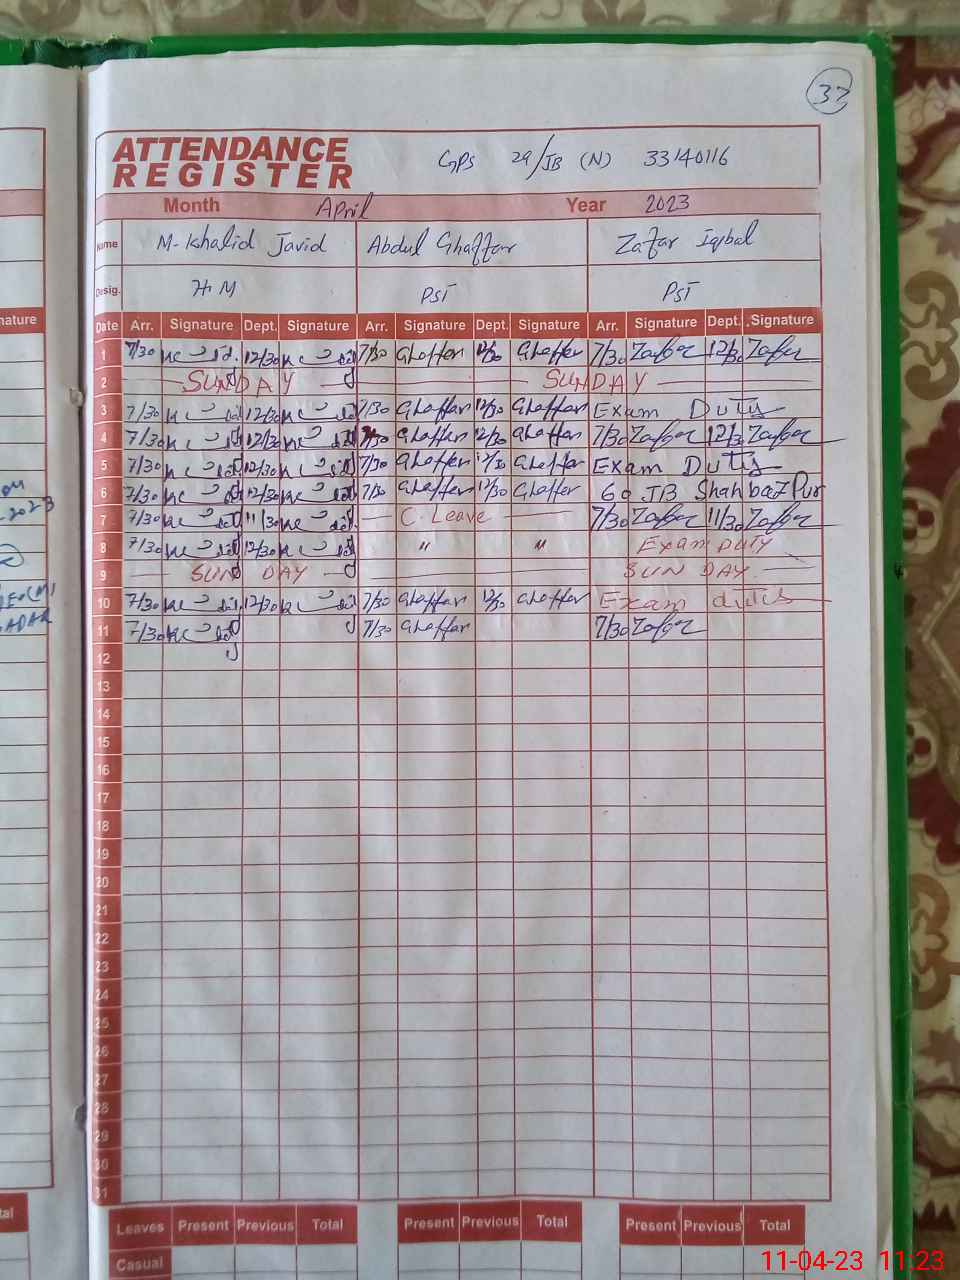 37
ATTENDANCE
REGISTER
GPS 29/JB (N) 33140116
Month April Year 2023
Name M. Khalid Javid Abdul Ghaffar Zafar Iqbal
Desig. HM PST PST
Date Arr. Signature Dept. Signature Arr. Signature Dept. Signature Arr. Signature Dept. Signature
1 7/30 12/30 7/30 Ghaffar 12/30 Ghaffar 7/30 Zafar 12/30 Zafar
2 SUNDAY SUNDAY
3 7/30 12/30 7/30 Ghaffar 12/30 Ghaffar Exam Duty
4 7/30 12/30 7/30 Ghaffar 12/30 Ghaffar 7/30 Zafar 12/30 Zafar
5 7/30 12/30 7/30 Ghaffar 11/30 Ghaffar Exam Duty
6 7/30 12/30 7/30 Ghaffar 12/30 Ghaffar 60 JB Shahbaz Pur
7 7/30 11/30 C. Leave 7/30 Zafar 11/30 Zafar
8 7/30 12/30 " " Exam DUTY
9 SUN DAY SUN DAY
10 7/30 12/30 7/30 Ghaffar 12/30 Ghaffar Exam duty
11 7/30 7/30 Ghaffar 7/30 Zafar
12
13
14
15
16
17
18
19
20
21
22
23
24
25
26
27
28
29
30
31
Leaves Present Previous Total Present Previous Total Present Previous Total
Casual
11-04-23 11:23